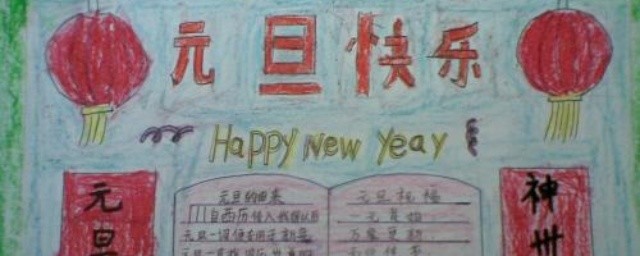 元旦快乐
Happy New Yeay
元旦
神州
元旦的由来
自西历传入我国以后
元旦一词便专用于新
元旦祝福
一元复始
万象更新